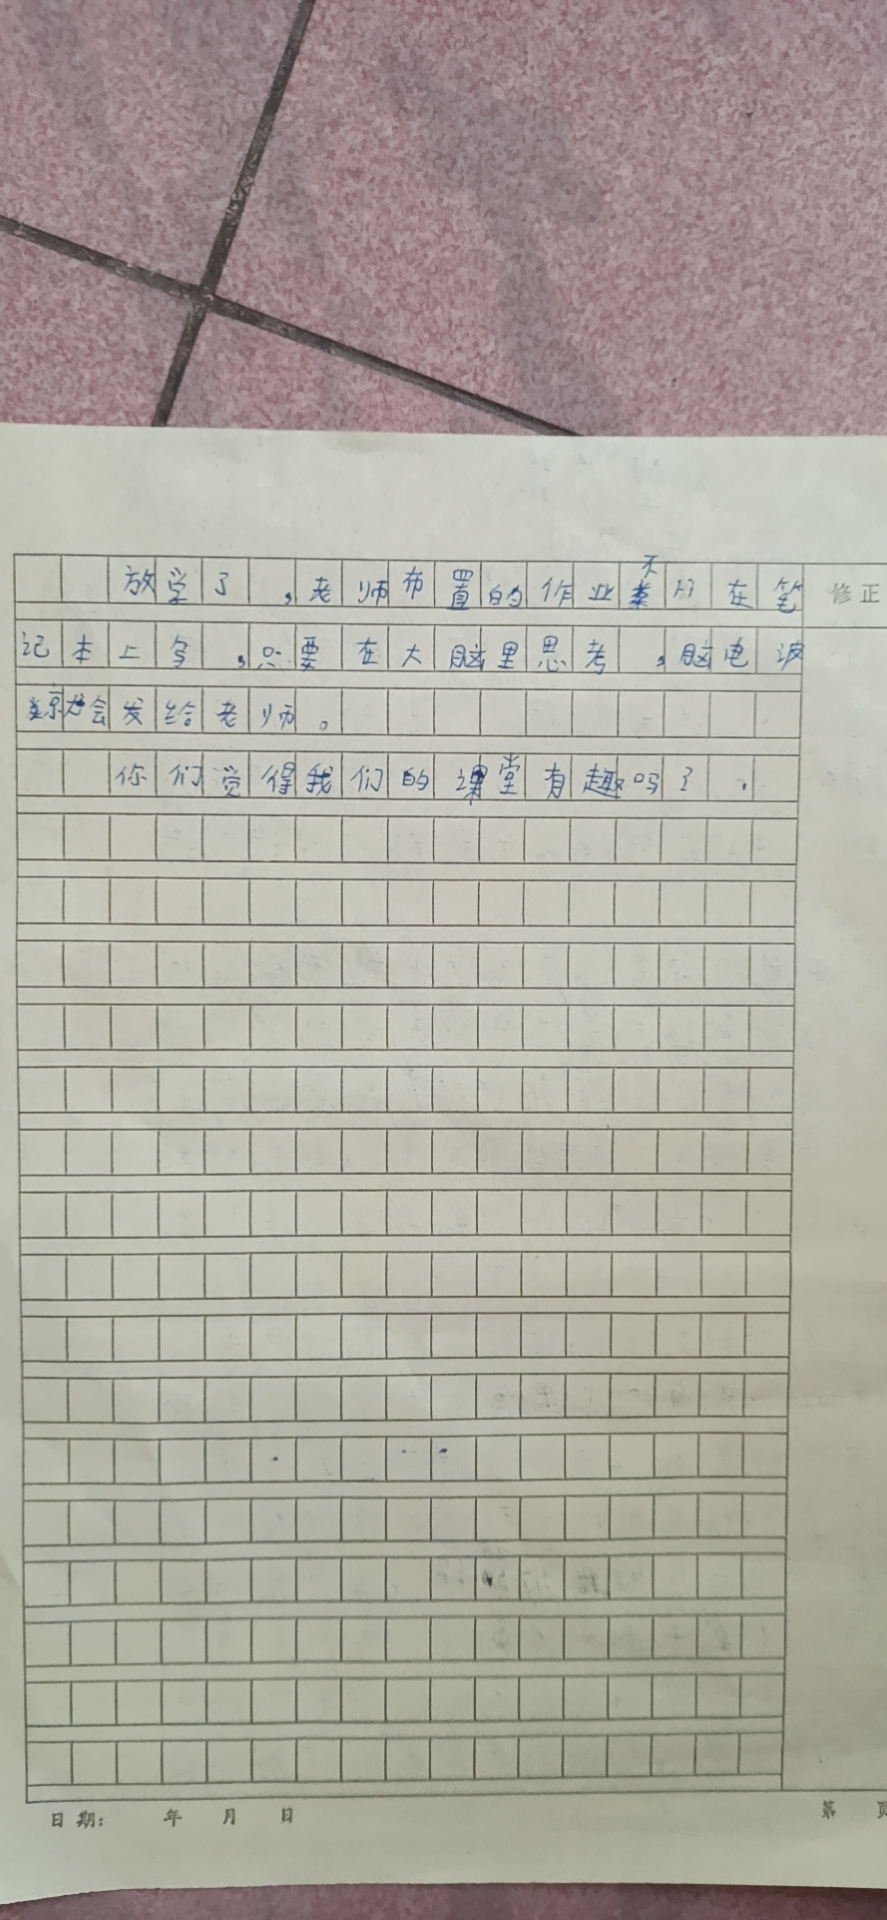 放学了,老师布置的作业不用在笔
修正
记本上写,只要在大脑里思考,脑电波
就会发给老师。
你们觉得我们的课堂有趣吗?
日期: 年 月 日
第 页